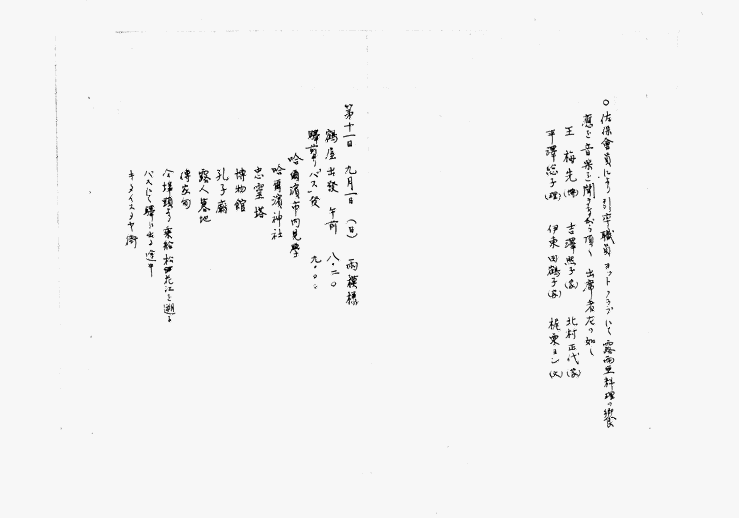 ○佐保會員により引卒職員ヨットクラブにて露西亜料理の饗
應と音楽を聞きながら頂く 出席者左の如し
王 梅先 吉澤熙子(家) 北村正代(家)
平澤総子(理) 伊東田鶴子(家) 梶栗ヨン(文)
第十一日 九月一日(日) 雨模様
鶴屋出發 午前 八・二〇
驛前ヨリバス 後 九・〇〇
哈爾濱市内見學
哈爾濱神社
忠霊塔
博物館
孔子廟
露人墓地
傅家甸
埠頭より乗船松花江を遡る
バスにて驛に出る途中
キタイスカヤ街